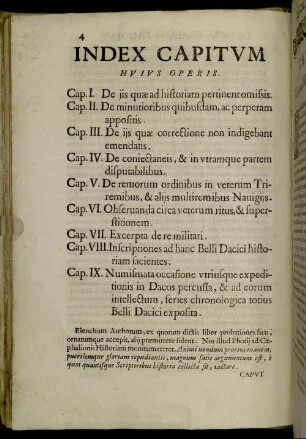 4
INDEX CAPITVM
HVIVS OPERIS.
Cap. I. De ijs quæ ad historiam pertinent omissis.
Cap. II. De minutioribus quibusdam, ac perperam
appositis.
Cap. III. De ijs quæ correctione non indigebant
emendatis.
Cap. IV. De coniectaneis, & in vtramque partem
disputabilibus.
Cap. V. De remorum ordinibus in veterum Tri-
remibus, & alijs multiremibus Nauigijs.
Cap. VI. Obseruanda circa veterum ritus, & super-
stitionem.
Cap. VII. Excerpta de re militari.
Cap. VIII. Inscriptiones ad hanc Belli Dacici histo-
riam facientes.
Cap. IX. Numismata occasione vtriusque expedi-
tionis in Dacos percussa, & ad eorum
intellectum, series chronologica totius
Belli Dacici exposita.
Elenchum Authorum, ex quorum dictis liber probationes suas,
ornatumque accepit, alij præmittere solent. Nos illud Photij ad Ce-
phalionis Historiam monitum terret. Animi nondum prouinciam,
puerilemque gloriam repudiantis, magnum satis argumentum est, è
quot quantisque Scriptoribus historia collecta sit, iactare.
CAPVT